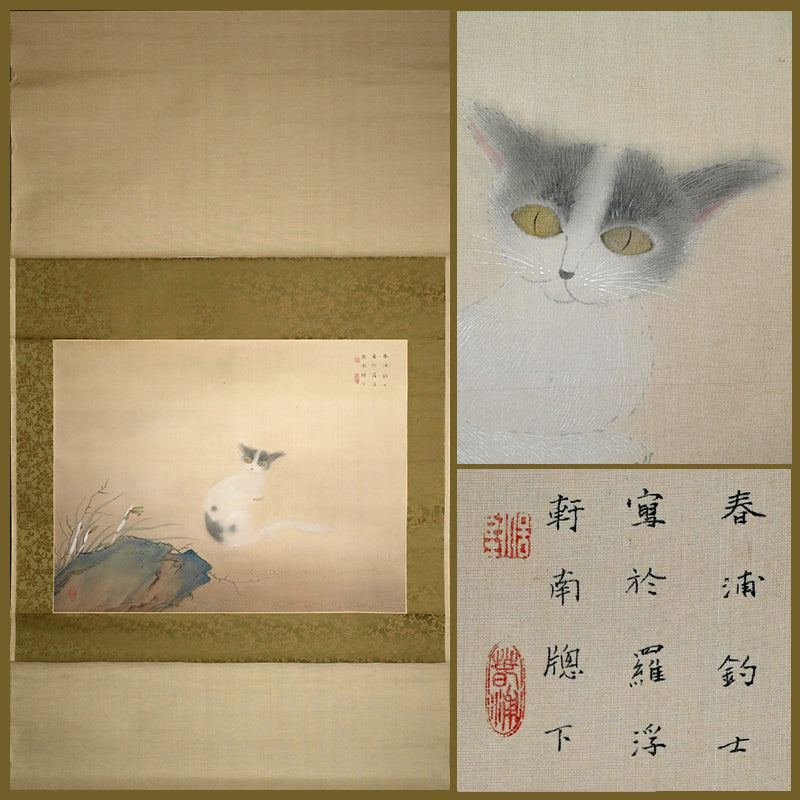 春浦釣士
寫於羅浮
軒南牕下
春浦